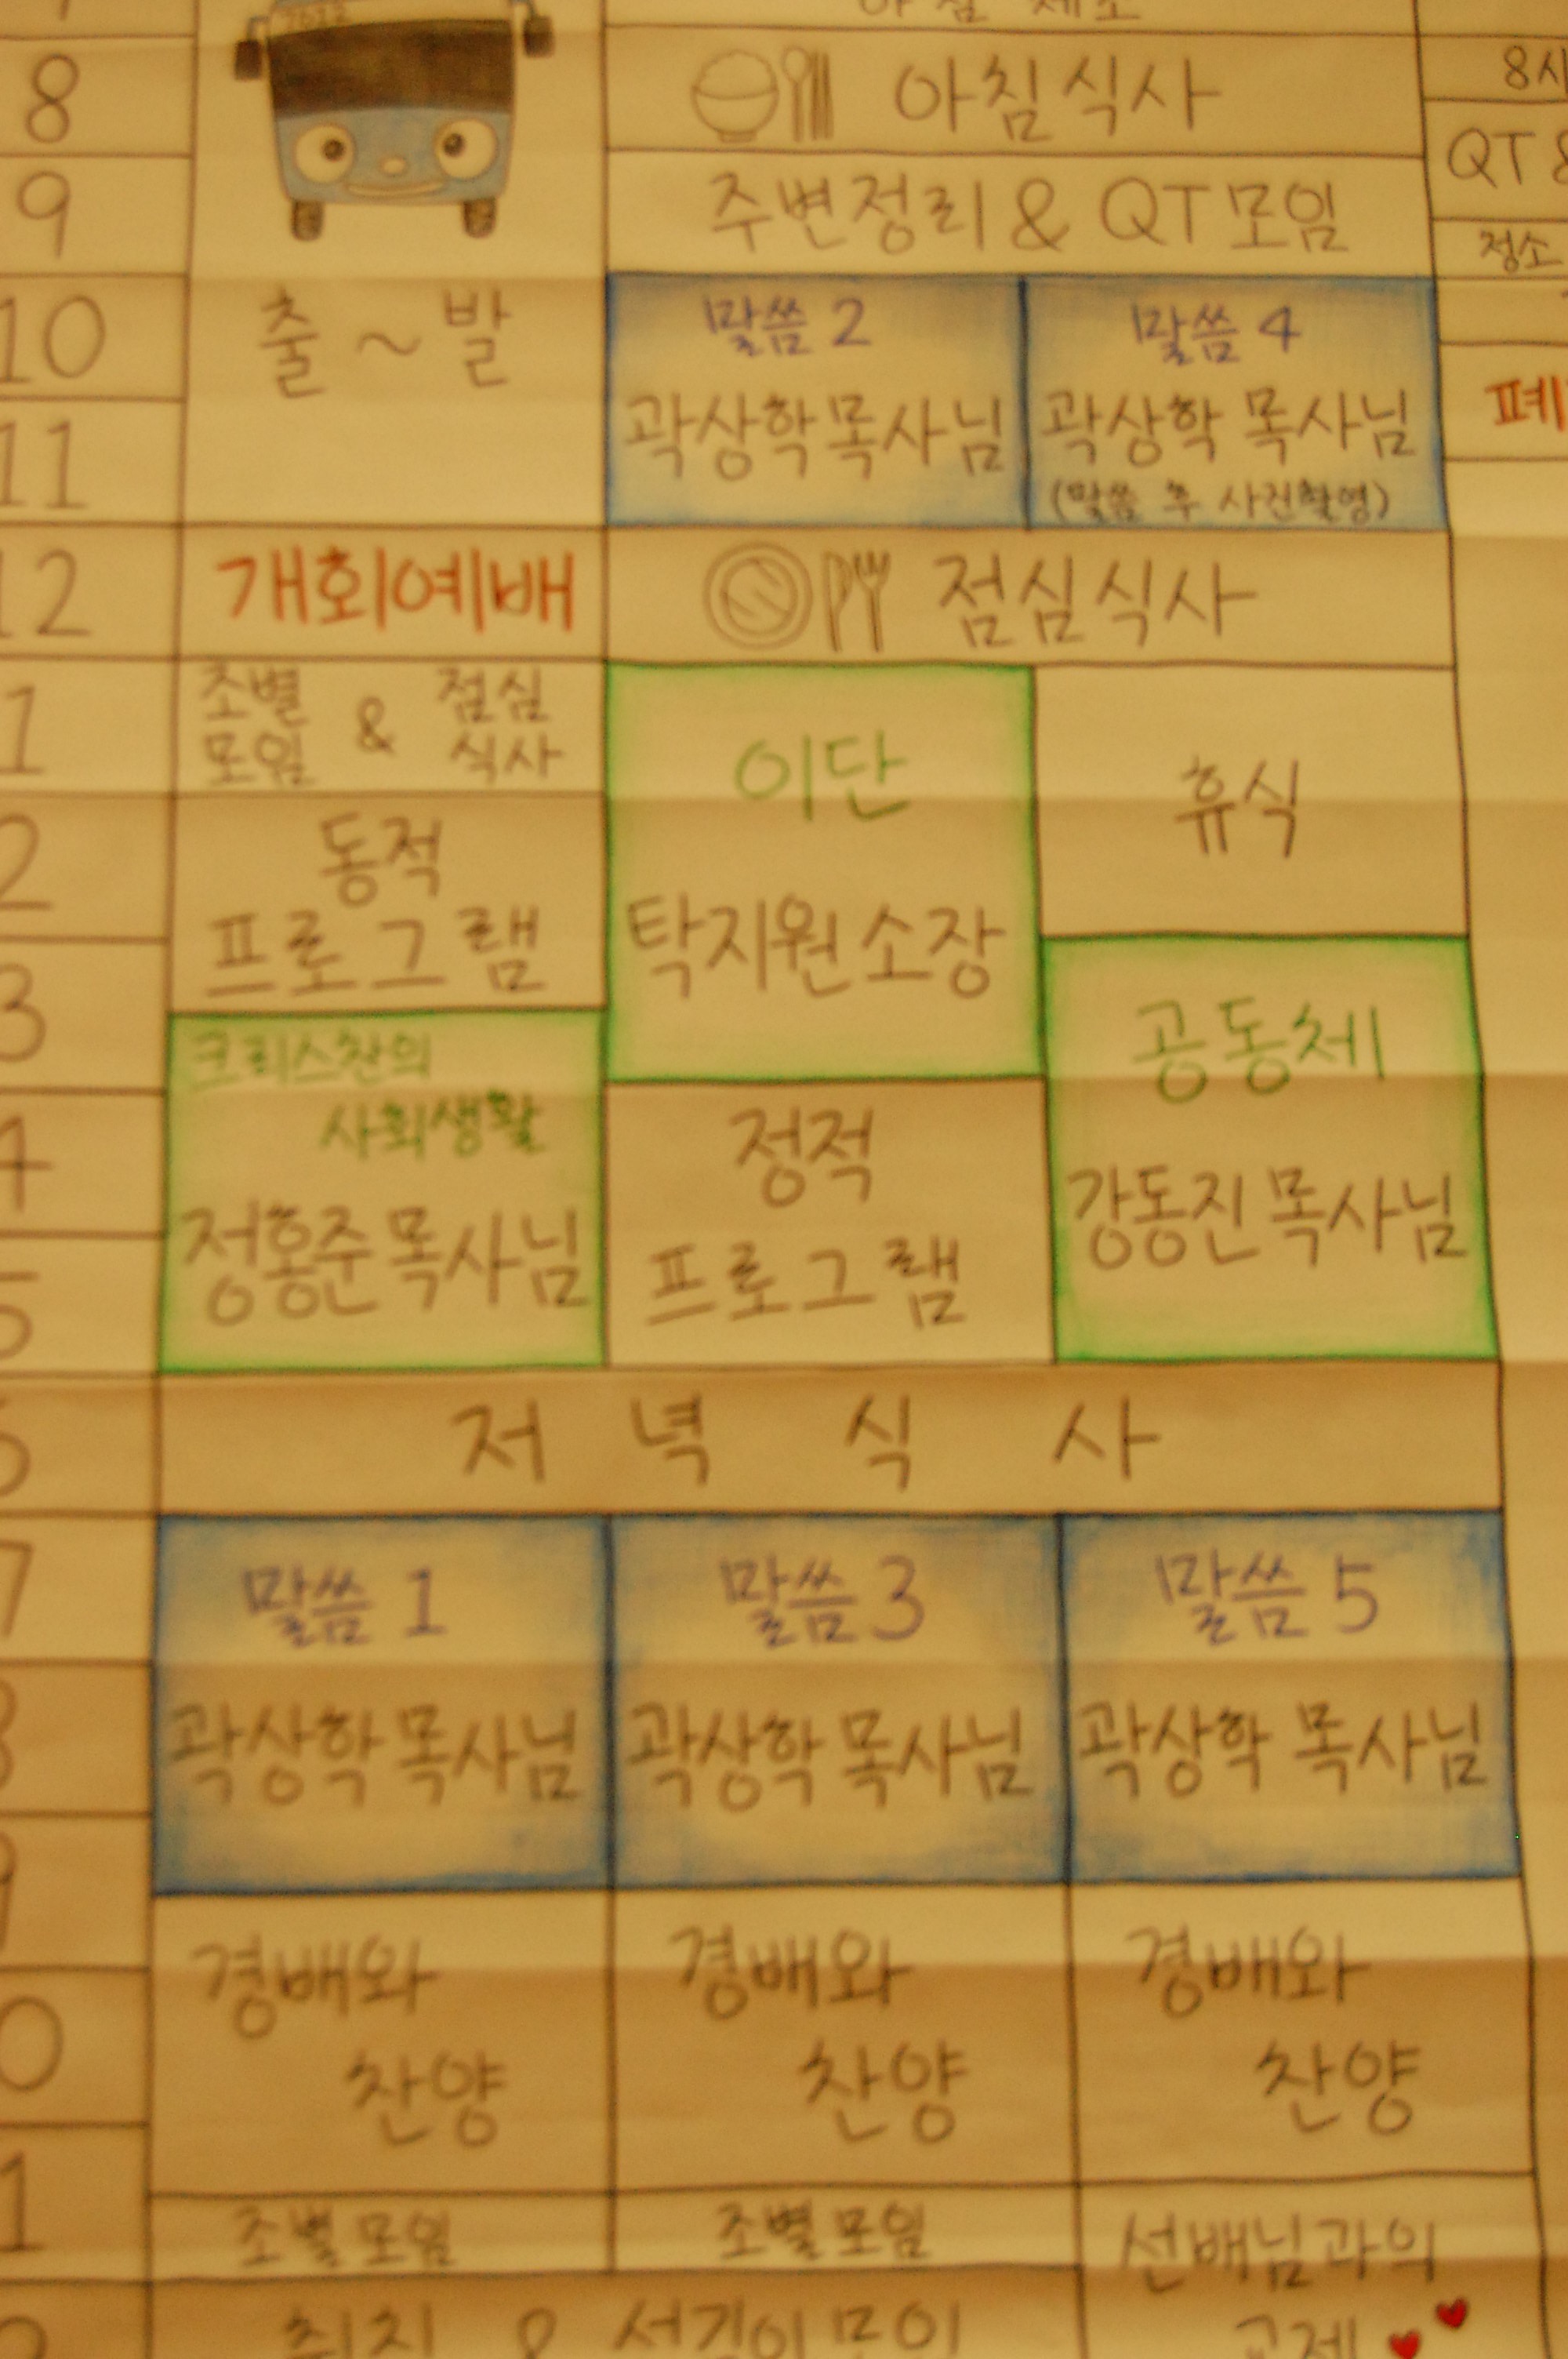 7612
아침 체조
8
아침식사
8시
9
주변정리 & QT 모임
QT &
청소
10
출 ~ 발
말씀 2
말씀 4
곽상학 목사님
곽상학 목사님
(말씀 후 사진촬영)
폐
11
12
개회예배
점심식사
1
조별 & 점심
모임 식사
이단
휴식
2
동적
프로그램
탁지원 소장
3
크리스찬의
사회생활
공동체
4
정홍준 목사님
정적
프로그램
강동진 목사님
5
저녁식사
7
말씀 1
말씀 3
말씀 5
곽상학 목사님
곽상학 목사님
곽상학 목사님
경배와
찬양
경배와
찬양
경배와
찬양
0
1
조별모임
조별모임
선배님과의
교제
취침 & 섬김이모임